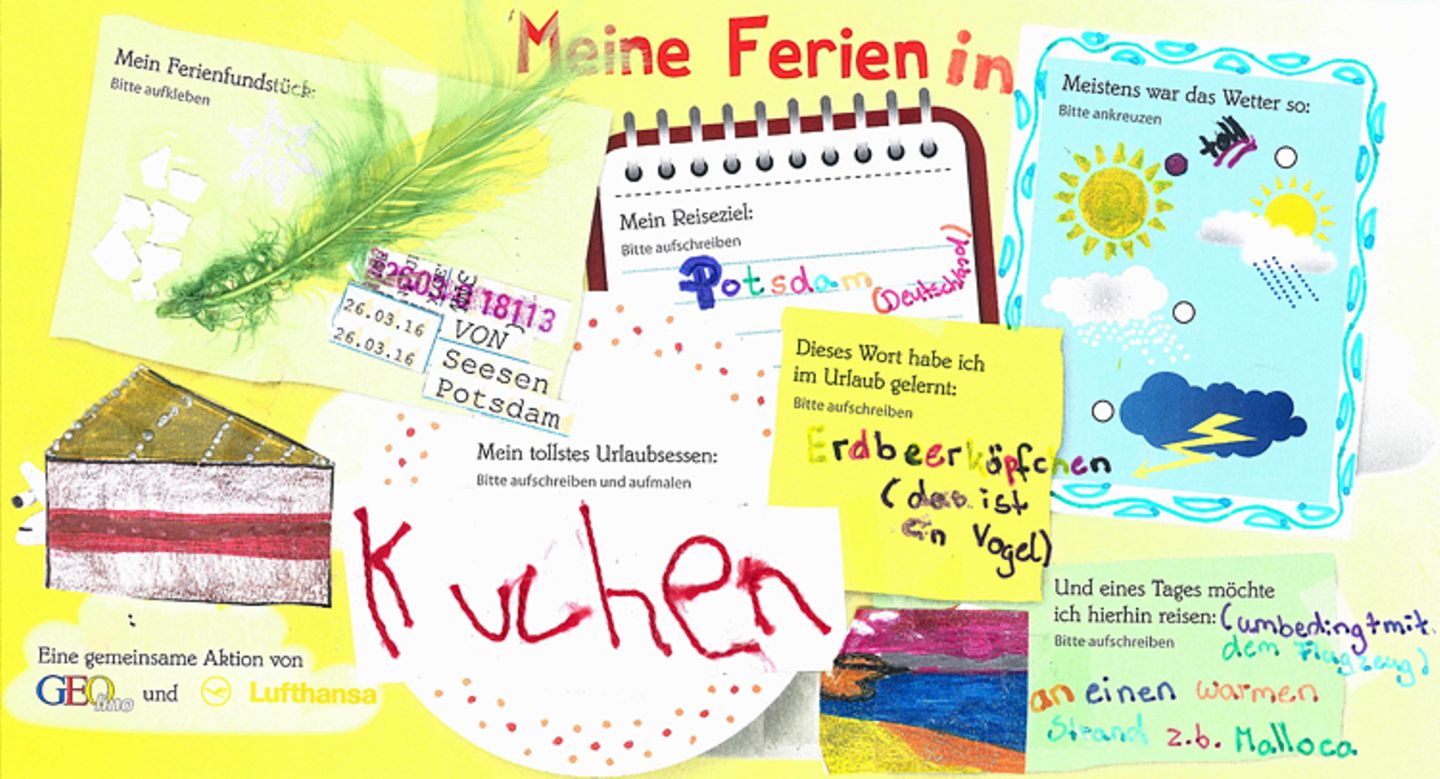 Meine Ferien in
Mein Ferienfundstück:
Bitte aufkleben
26.03.16
26.03.16
VON
Seesen
Potsdam
Mein Reiseziel:
Bitte aufschreiben
Potsdam (Deutschland)
Meistens war das Wetter so:
Bitte ankreuzen
toll
Dieses Wort habe ich
im Urlaub gelernt:
Bitte aufschreiben
Erdbeerköpfchen
(das ist
ein Vogel)
Mein tollstes Urlaubsessen:
Bitte aufschreiben und aufmalen
Kuchen
Und eines Tages möchte
ich hierhin reisen: (umbedingt mit
Bitte aufschreiben dem Flugzeug)
an einen warmen
Strand z.b. Malloca
Eine gemeinsame Aktion von
GEOlino und Lufthansa